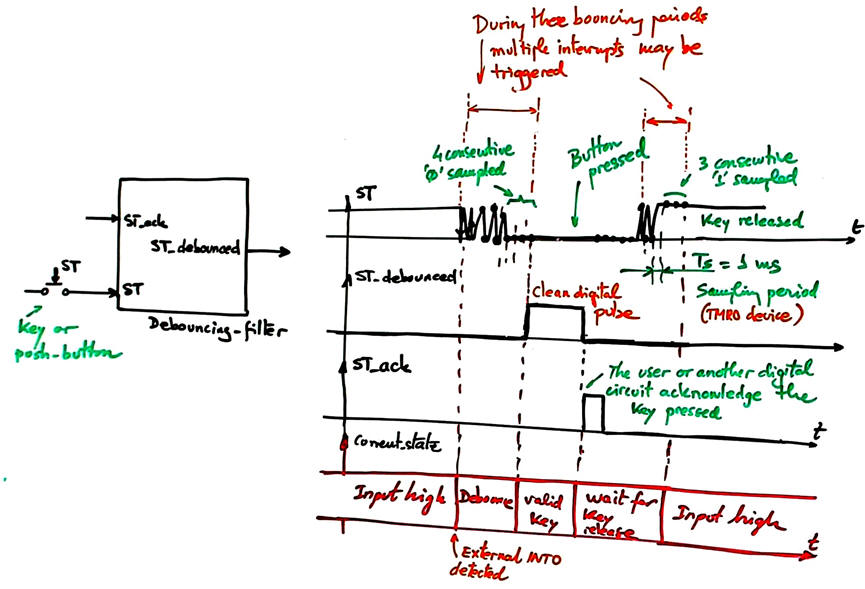 During these bouncing periods
multiple interrupts may be
triggered
4 consecutive
'0' sampled
Button
pressed
3 consecutive
'1' sampled
ST
Key released
t
ST_ack
ST_debounced
ST
ST
Debouncing_filter
Key or
push-button
Ts = 1 ms
Sampling period
(TMR0 device)
ST_debounced
Clean digital
pulse
ST_ack
The user or another digital
circuit acknowledge the
key pressed
t
Current_state
Input high
Debounce
valid
key
wait for
key
release
Input high
t
External INT0
detected